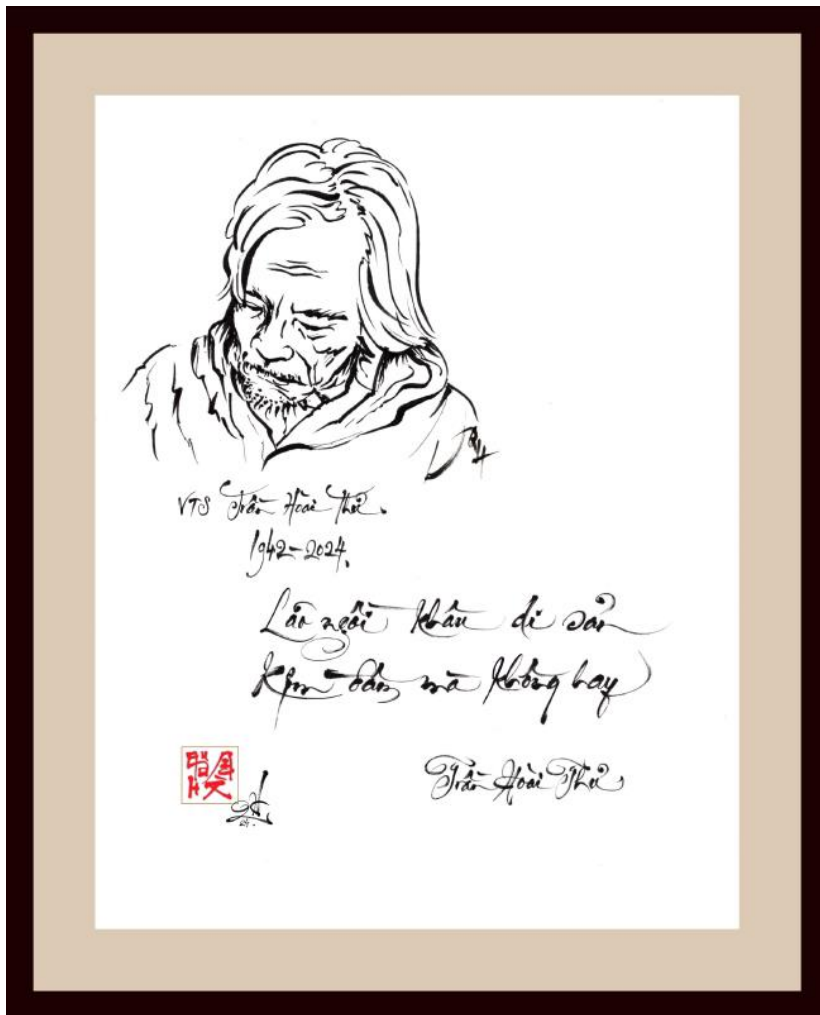 VTS Trần Hoài Thư.
1942-2024.
Lão ngồi khâu di sản
Kim đâm mà không hay
Trần Hoài Thư